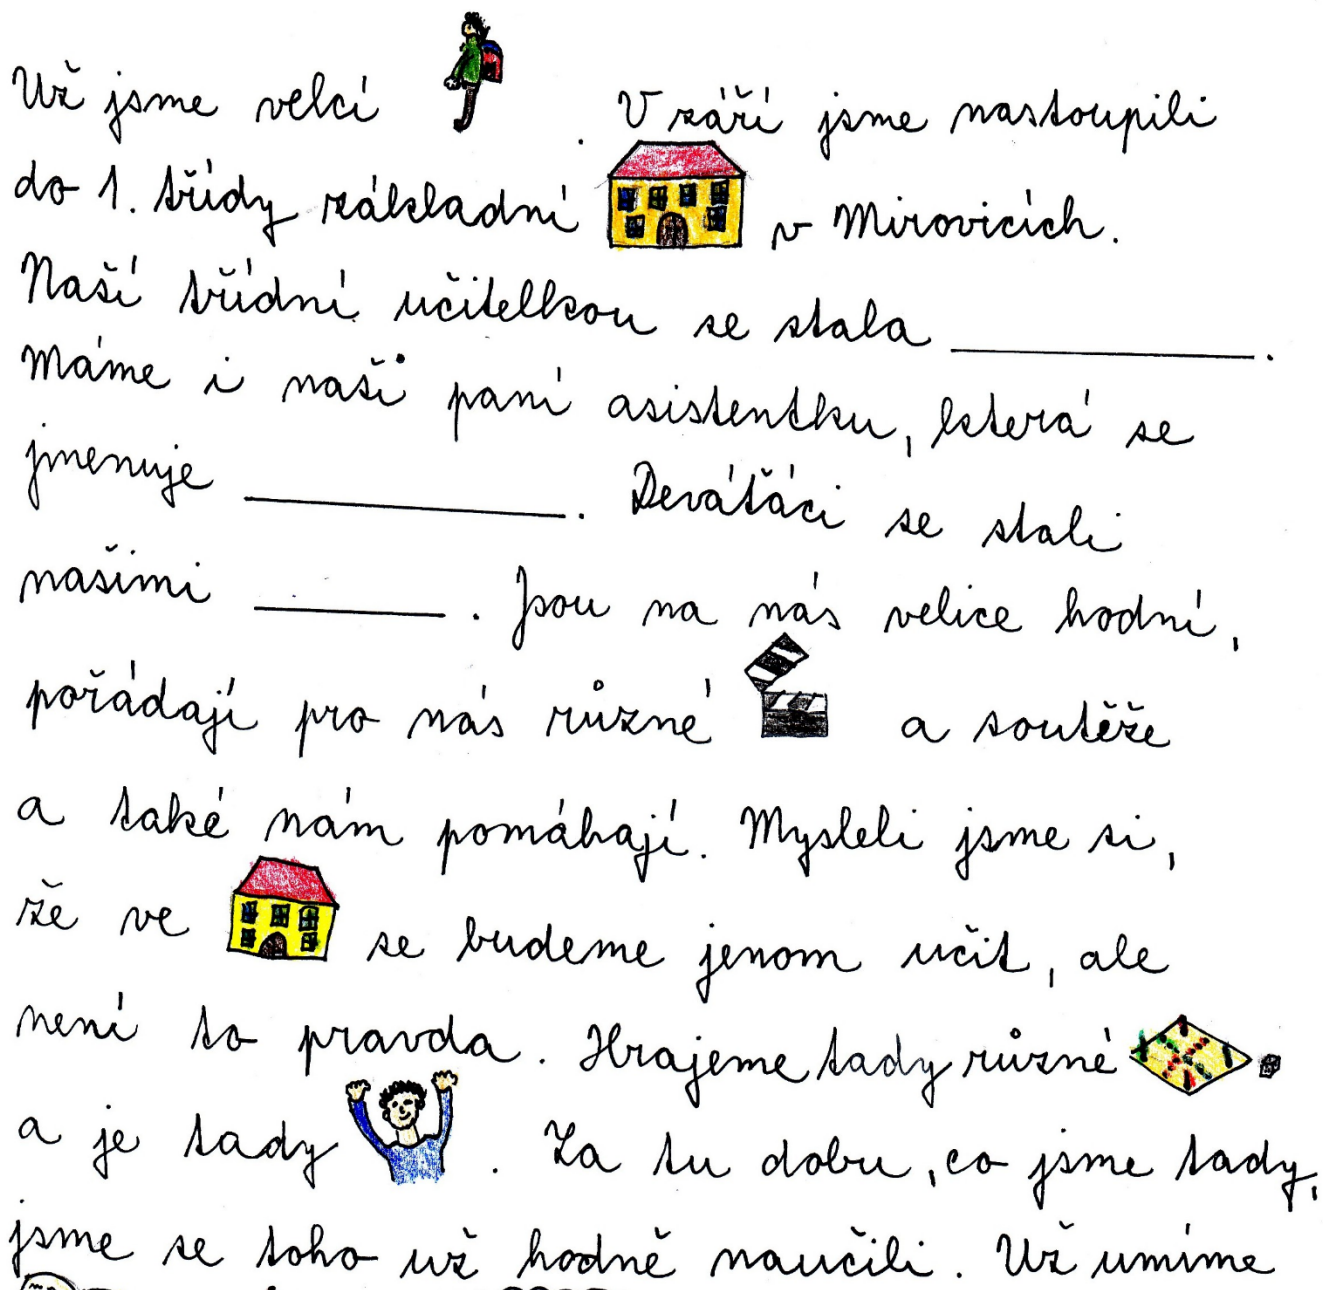 Už jsme velcí . V září jsme nastoupili
do 1. třídy základní v Mirovicích.
Naší třídní učitelkou se stala __________.
Máme i naši paní asistentku, která se
jmenuje __________. Deváťáci se stali
našimi ______. Jsou na nás velice hodní,
pořádají pro nás různé a soutěže
a také nám pomáhají. Mysleli jsme si,
že ve se budeme jenom učit, ale
není to pravda. Hrajeme tady různé
a je tady . Za tu dobu, co jsme tady,
jsme se toho už hodně naučili. Už umíme